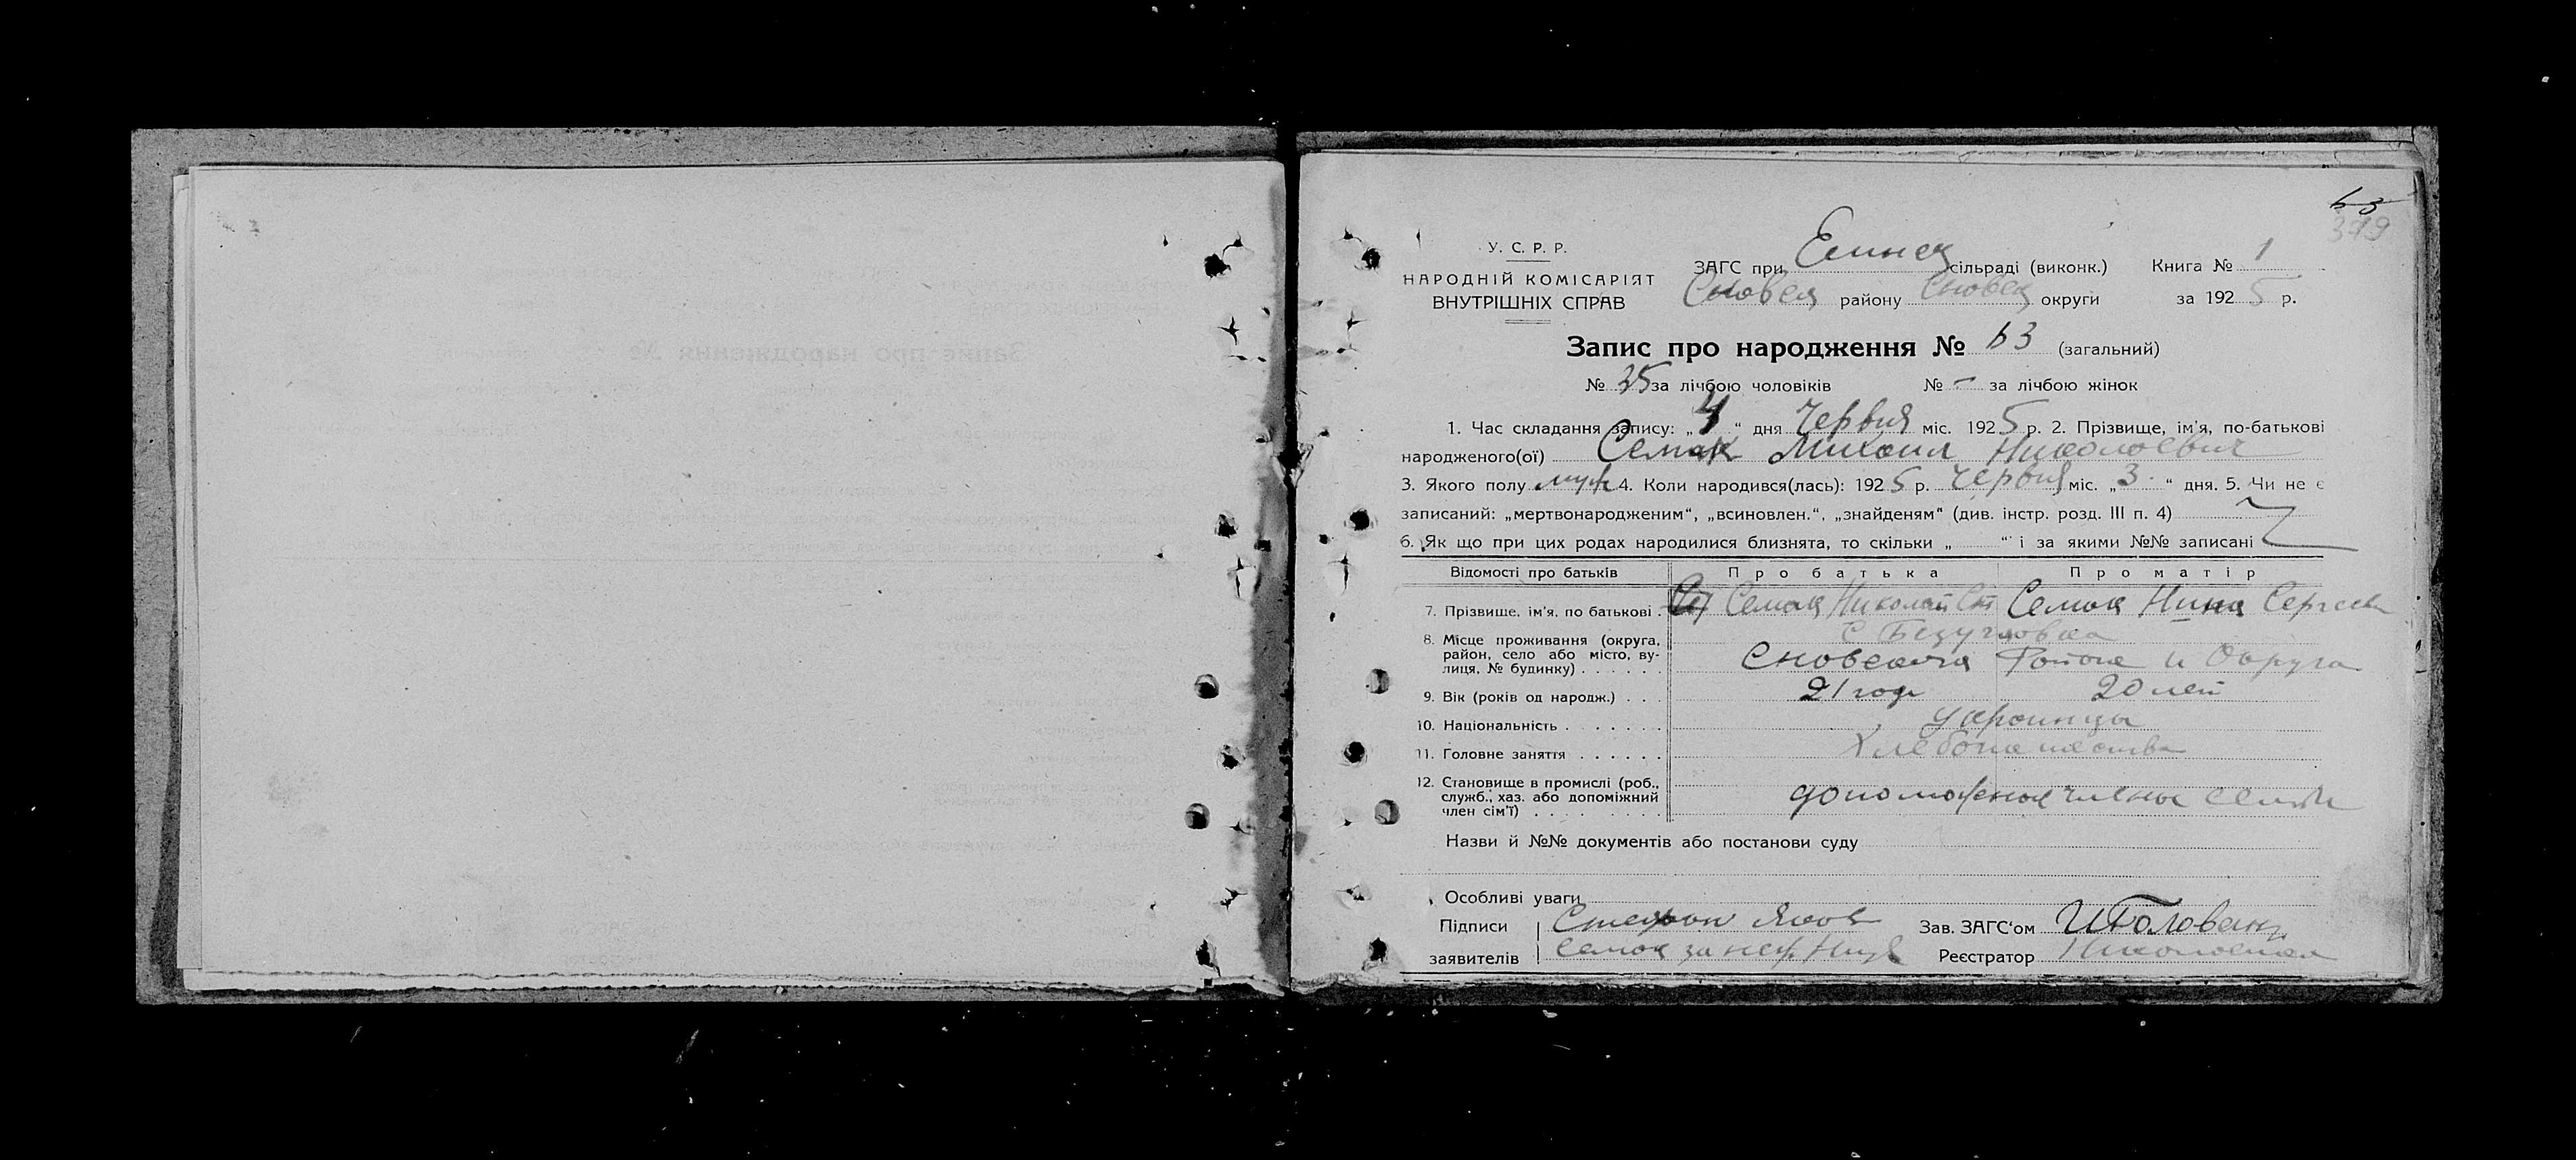 63
379
У. С. Р. Р.
НАРОДНІЙ КОМІСАРІЯТ
ВНУТРІШНІХ СПРАВ
ЗАГС при сільраді (виконк.) Книга № 1
Сновск району Сновск округи за 1925 р.
Запис про народження № 63 (загальний)
№ 35 за лічбою чоловіків № – за лічбою жінок
1. Час складання запису: „4“ дня Червня міс. 1925 р. 2. Прізвище, ім'я, по-батькові
народженого(ої) Семак Михаил Николаевич
3. Якого полу муж 4. Коли народився(лась): 1925 р. Червня міс. „3“ дня. 5. Чи не є
записаний: „мертвонародженим“, „всиновлен.“, „знайденям“ (див. інстр. розд. III п. 4)
6. Як що при цих родах народилися близнята, то скільки „ “ і за якими №№ записані
Відомості про батьків Про батька Про матір
7. Прізвище, ім'я, по батькові . Семак Николай Ст Семак Нина Сергеев
8. Місце проживання (округа, район, село або місто, вулиця, № будинку) . . . . . . с Безугловка
Району и Округа
9. Вік (років од народж.) . . . 21 год 20 лет
10. Національність . . . . . . . украинцы
11. Головне заняття . . . . . . Хлебопашество
12. Становище в промислі (роб., служб., хаз. або допоміжний член сім'ї) . . . . . . . . . члены семьи
Назви й №№ документів або постанови суду
Особливі уваги
Підписи Зав. ЗАГС'ом
заявителів Семак за неж Реєстратор